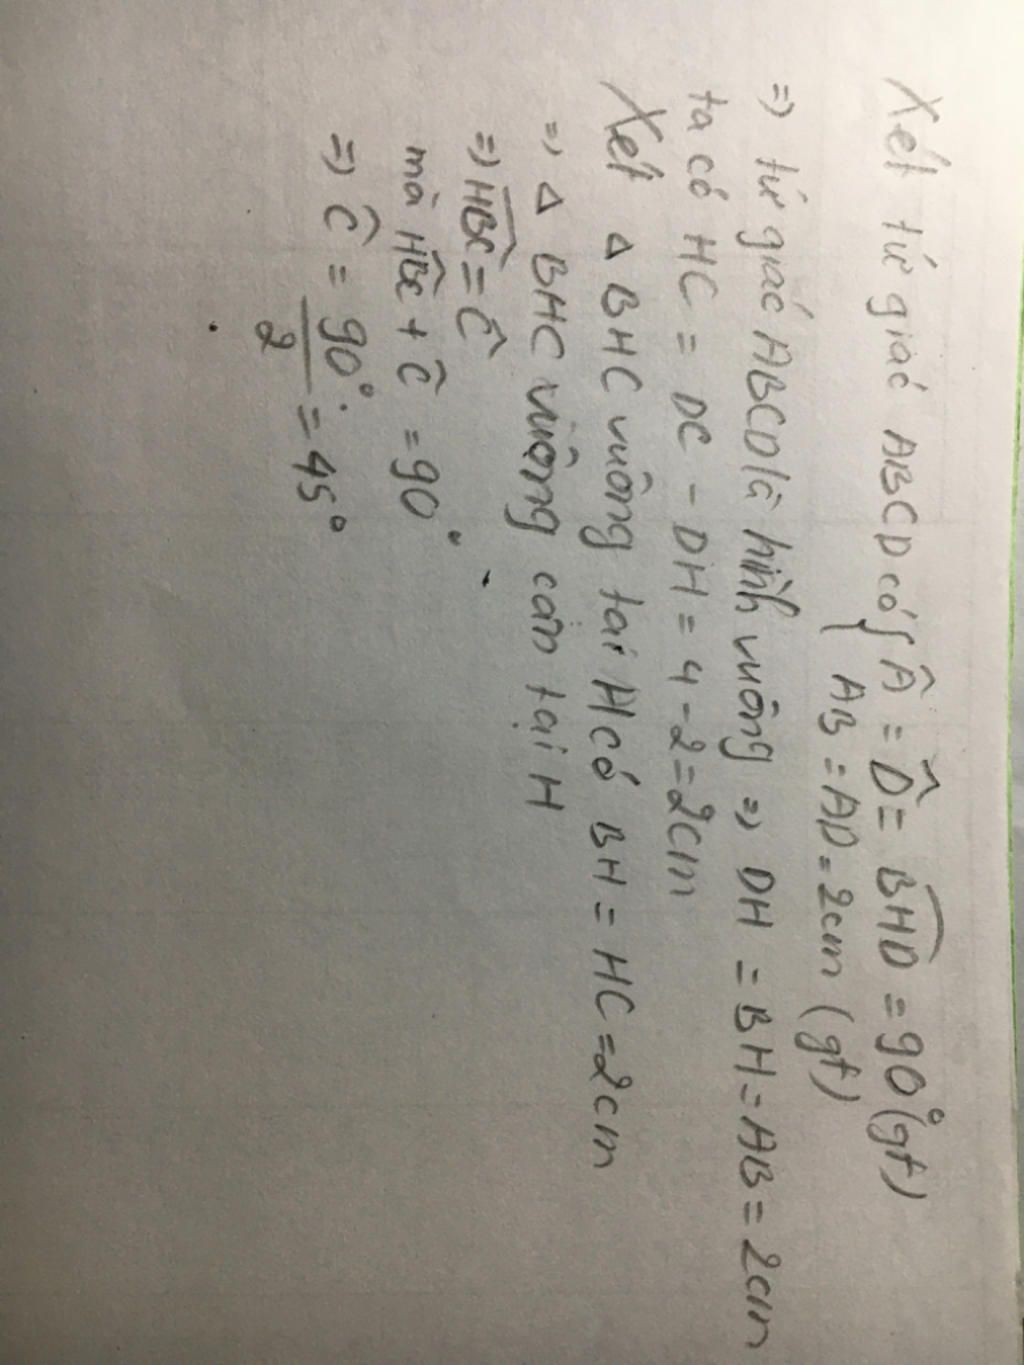 Xét tứ giác ABCD có { Â = D̂ = BHD = 90° (gt)
AB = AD = 2cm (gt)
=> tứ giác ABCD là hình vuông => DH = BH = AB = 2cm
ta có HC = DC - DH = 4 - 2 = 2cm
Xét Δ BHC vuông tại H có BH = HC = 2cm
=> Δ BHC vuông cân tại H
=> HBC = Ĉ
mà HBC + Ĉ = 90°
=> Ĉ = 90° / 2 = 45°